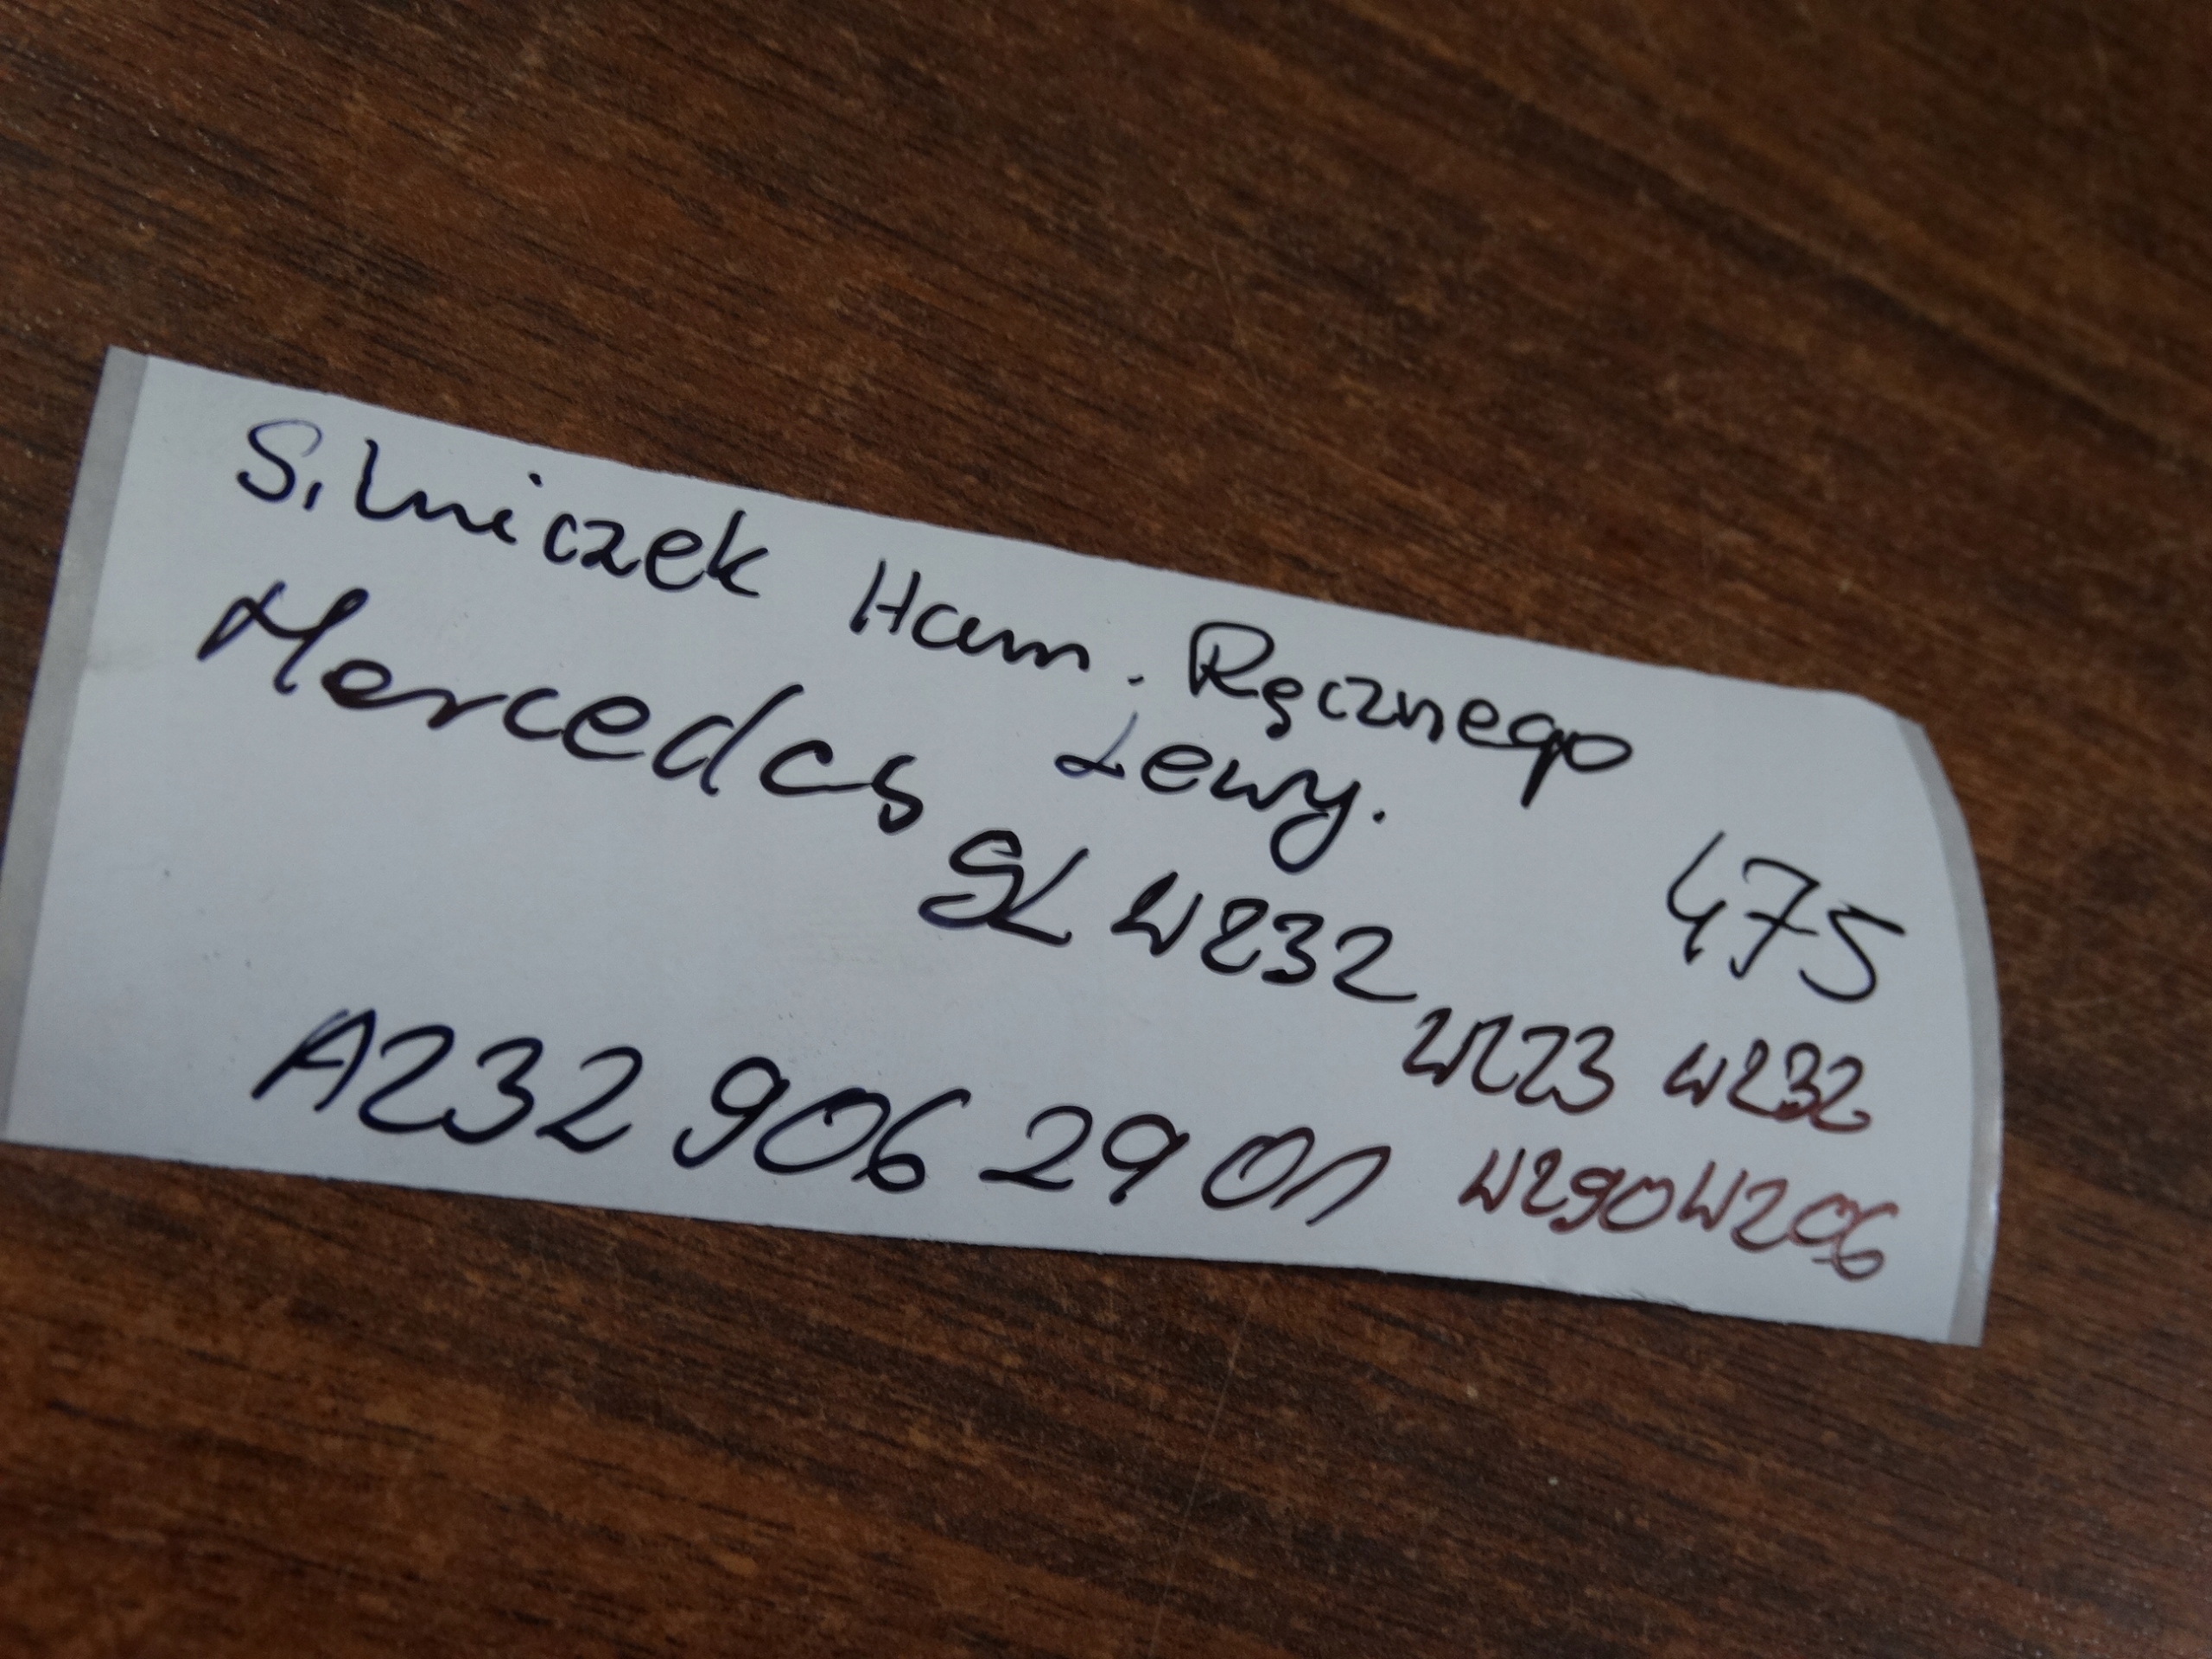 Silniczek Ham. Ręcznego
Lewy.
Mercedes SL W232
475
W223 W232
A232 906 29 01
W290 W206